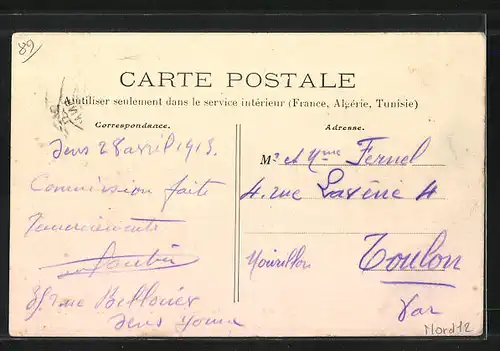 89
CARTE POSTALE
A utiliser seulement dans le service intérieur (France, Algérie, Tunisie)
Correspondance.
Adresse.
Sens 28 avril 1913.
Commission faite
Remerciements
35 rue
Sens Yonne
Mr et Mme Fernel
4. rue 4
Mourillon
Toulon
Var
Mord12